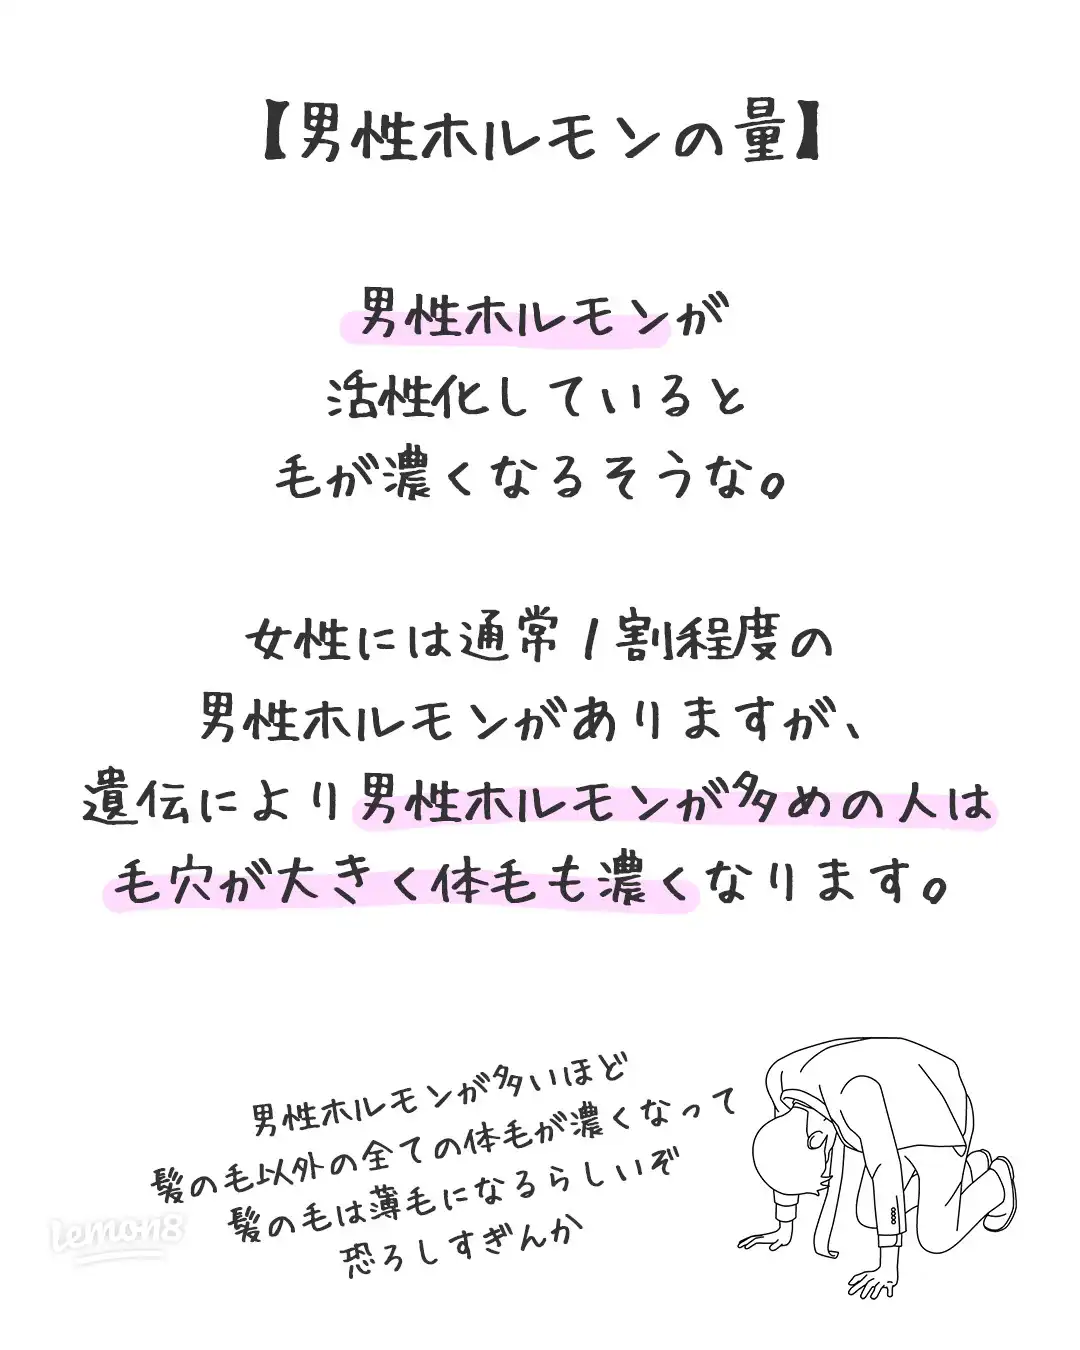 【男性ホルモンの量】
男性ホルモンが
活性化していると
毛が濃くなるそうな。
女性には通常1割程度の
男性ホルモンがありますが、
遺伝により男性ホルモンが多めの人は
毛穴が大きく体毛も濃くなります。
男性ホルモンが多いほど
髪の毛以外の全ての体毛が濃くなって
髪の毛は薄毛になるらしいぞ
恐ろしすぎんか
lemon8